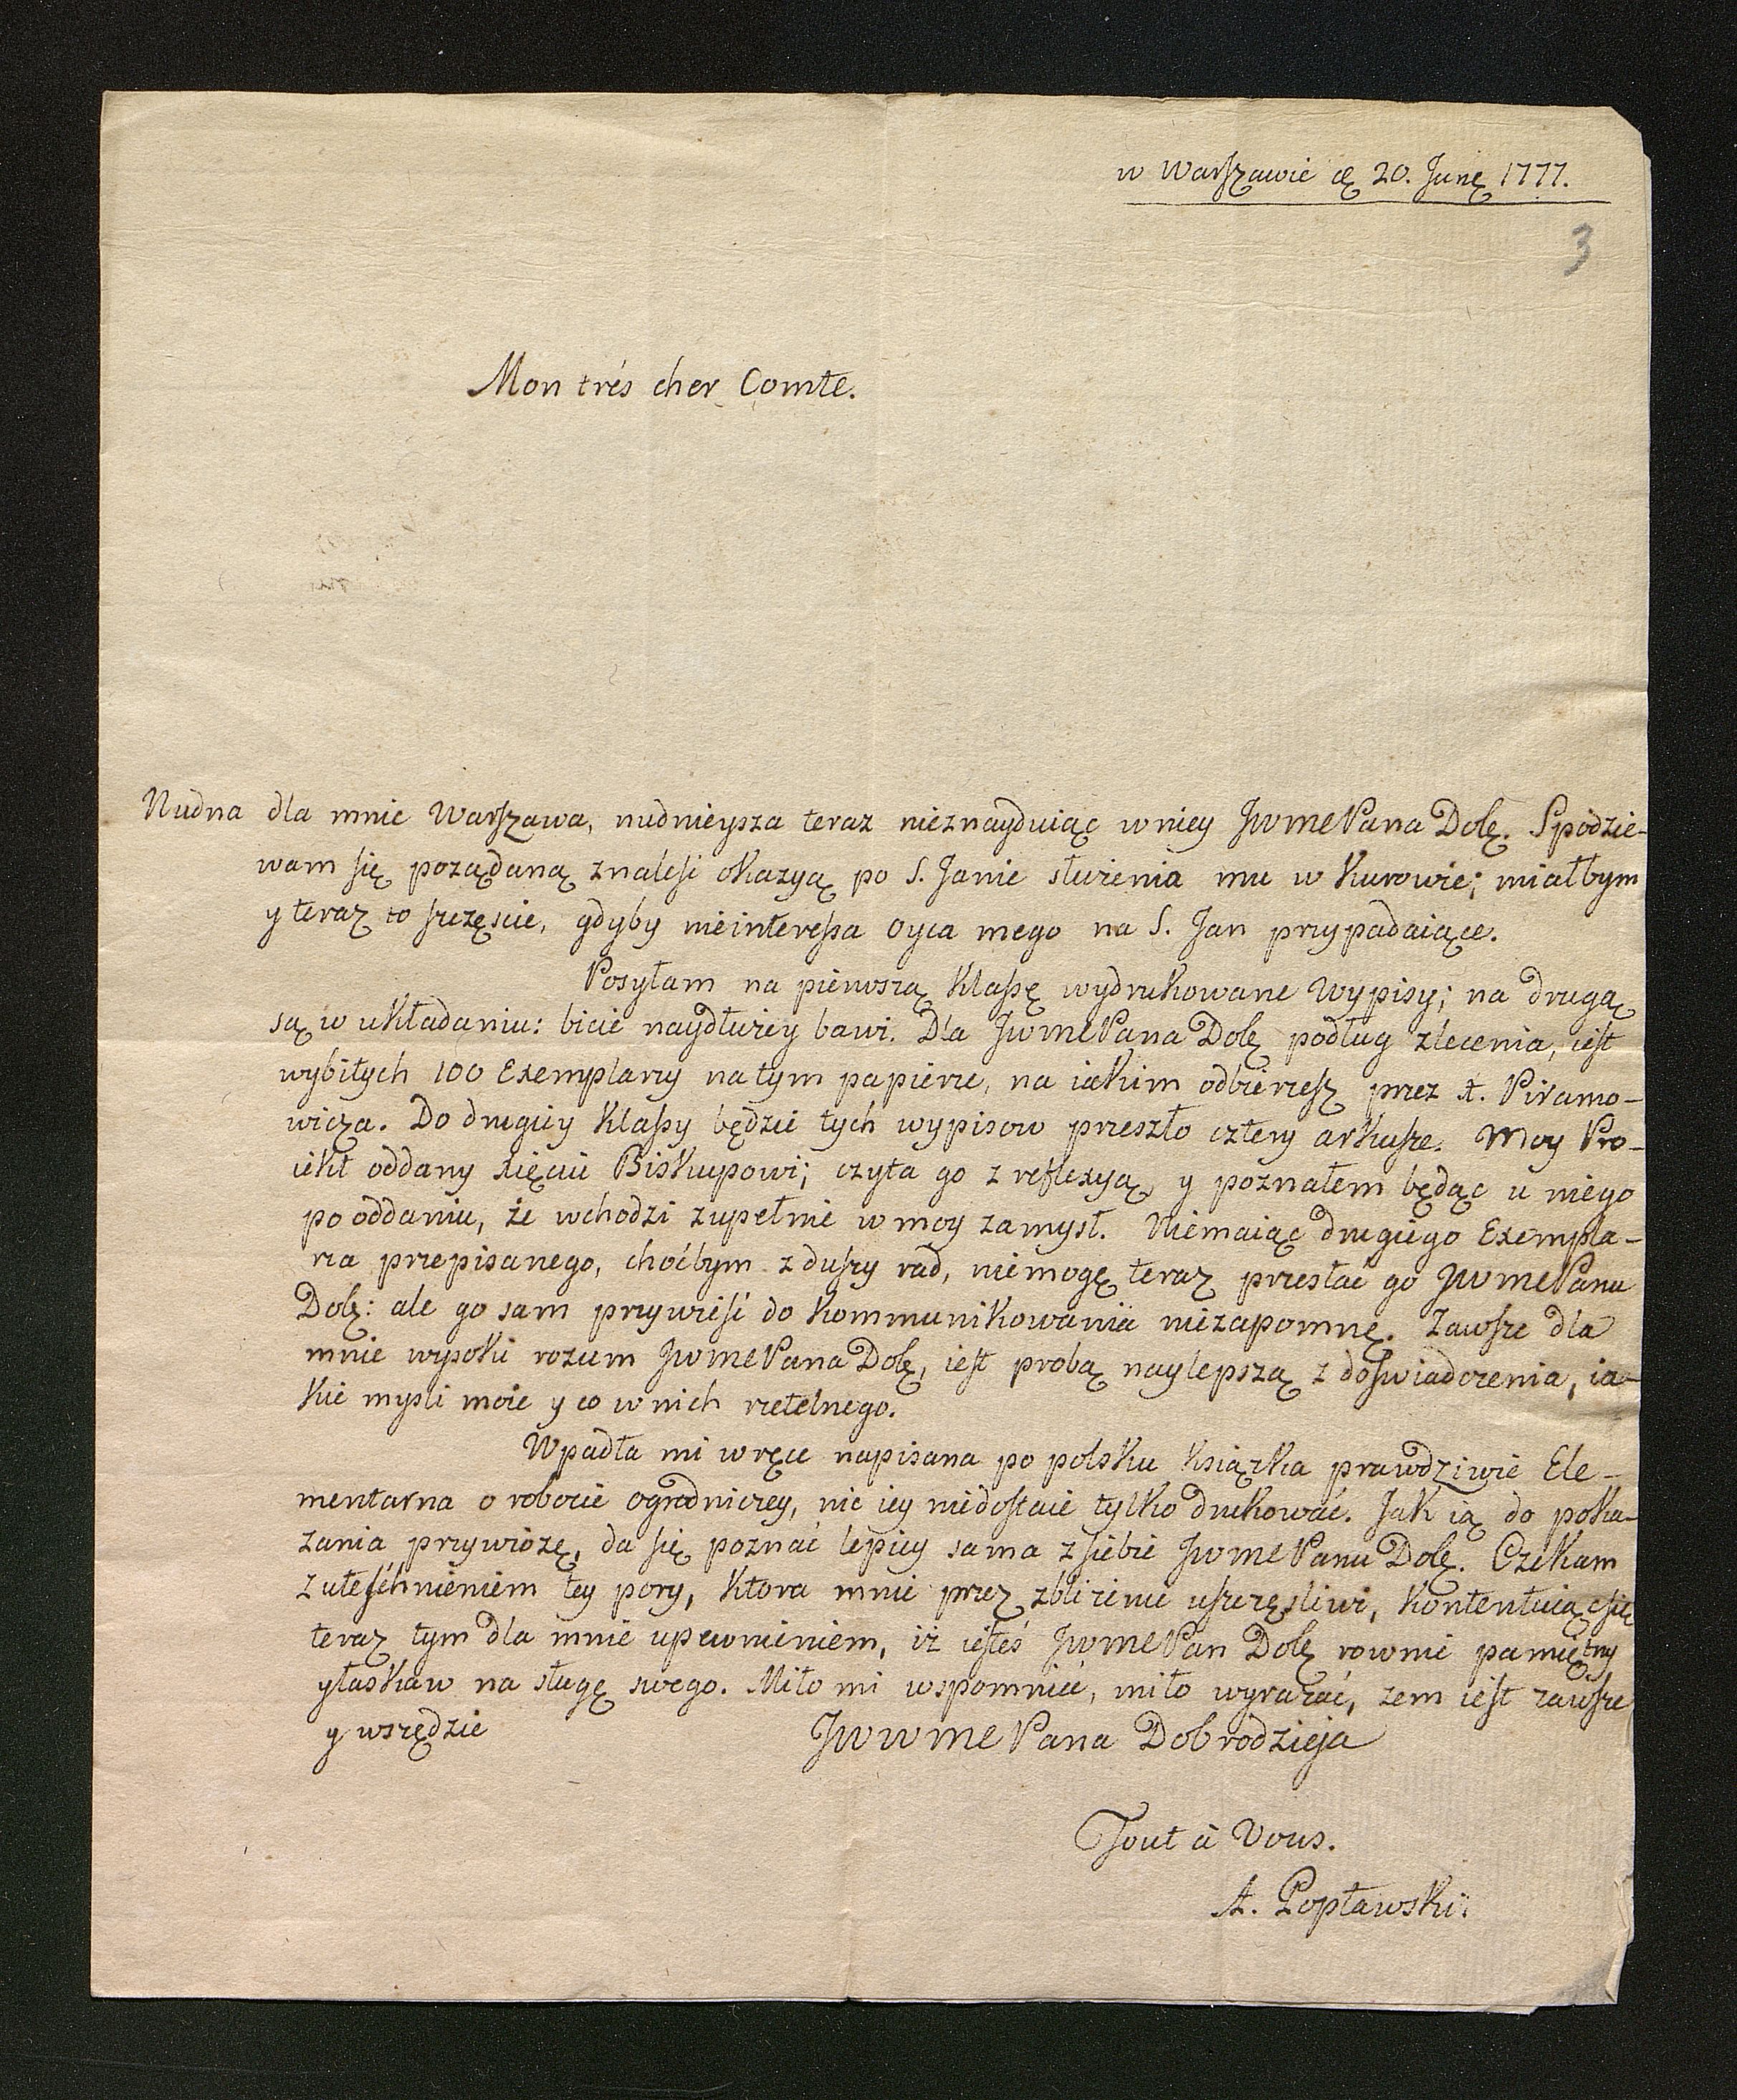 w Warszawie d. 20. Junę 1777.
3
Mon trés cher Comte.
Nudna dla mnie Warszawa, nudnieysza teraz nieznayduiąc w niey JWmePana Dolę. Spodzie-
wam się pożądaną znaleść okazyą po S. Janie służenia mu w Kurowie; miałbym
y teraz to szczęscie, gdyby nieinteressa Oyca mego na S. Jan przypadaiące.
Posyłam na pierwszą Klassę wydrukowane Wypisy; na drugą
są w układaniu: bicie naydłużey bawi. Dla JWmePana Dolę podług zlecenia, iest
wybitych 100 Exemplarzy na tym papierze, na iakim odbierzesz przez X. Piramo-
wicza. Do drugiey Klassy będzie tych wypisow przeszło cztery arkusze. Moy Pro-
iekt oddany Xięciu Biskupowi; czyta go z reflexyą, y poznałem będąc u niego
po oddaniu, że wchodzi zupełnie w moy zamysł. Niemaiąc drugiego Exempla-
rza przepisanego, choćbym z duszy rad, niemogę teraz przesłać go JWmePanu
Dolę: ale go sam przywieść do kommunikowania niezapomnę. Zawsze dla
mnie wysoki rozum JWmePana Dolę, iest probą naylepszą z doświadczenia, ia-
kie mysli moie y co w nich rzetelnego.
Wpadła mi w ręce napisana po polsku książka prawdziwie Ele-
mentarna o robocie ogrodniczey, nic iey niedostaie tylko drukować. Jak ią do poka-
zania przywiozę, da się poznać lepiey sama z siebie JWmePanu Dolę. Czekam
z utęschnieniem tey pory, ktora mnie przez zbliżenie uszczęsliwi, kontentuiąc się
teraz tym dla mnie upewnieniem, iż iesteś JWmePan Dolę rownie pamiętny
y łaskaw na sługę swego. Miło mi wspomnieć, miło wyrażać, żem iest zawsze
y wszędzie JWWmePana Dobrodzieja
Tout à Vous.
A. Popławski.